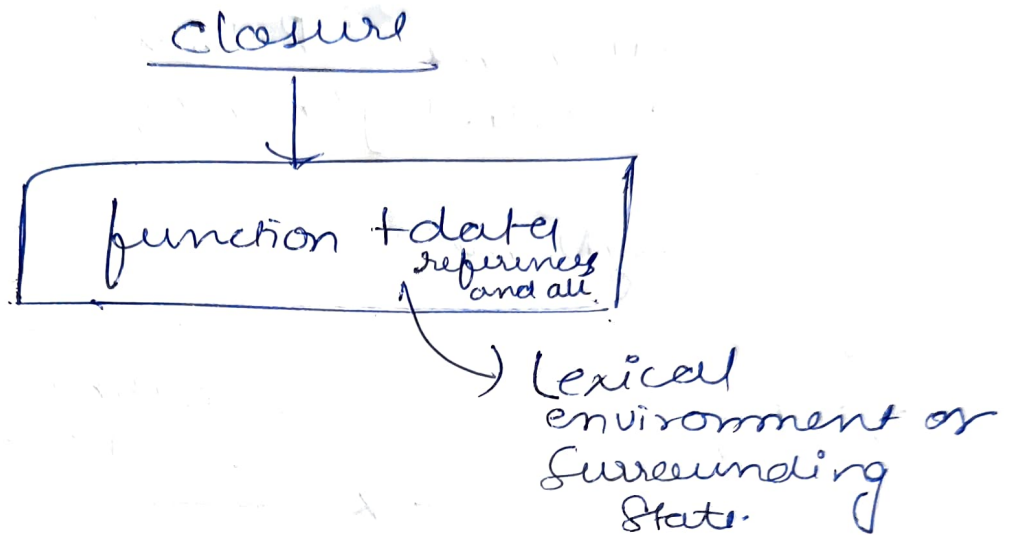 closure
function + data
references
and all.
Lexical
environment or
Surrounding
State.